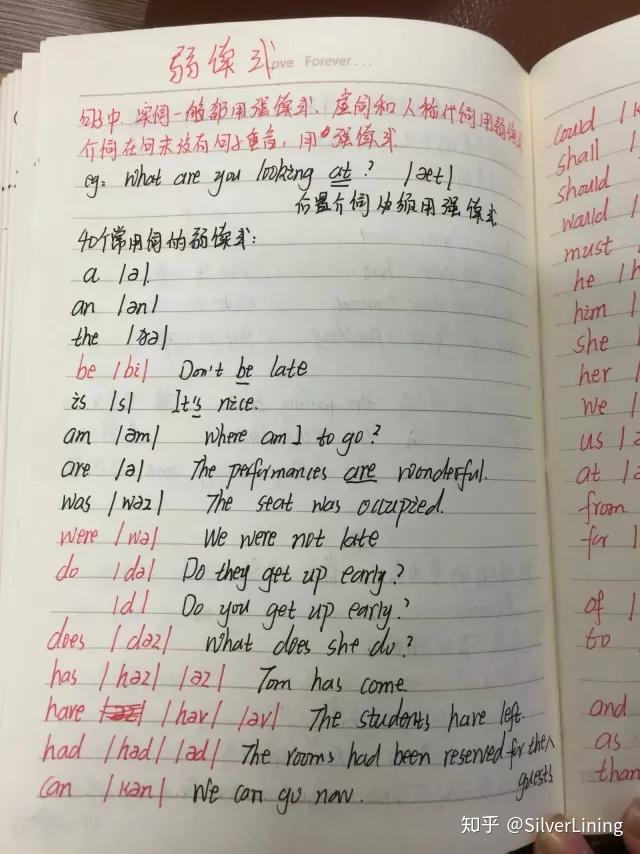 弱读式
Love Forever...
句子中,实词一般都用强读式、虚词和人称代词用弱读式
介词在句末没有句子重音,用强读式
eg: What are you looking at? |æt|
后置介词必须用强读式
40个常用词的弱读式:
a |ə|
an |ən|
the |ðə|
be |bi| Don't be late
is |s| It's nice.
am |əm| Where am I to go?
are |ə| The performances are wonderful.
was |wəz| The seat was occupied.
were |wə| We were not late
do |də| Do they get up early?
|d| Do you get up early?
does |dəz| What does she do?
has |həz| |əz| Tom has come.
have |həv| |əv| The students have left.
had |həd| |əd| The rooms had been reserved for the
guests
can |kən| We can go now.
could
shall
should
would
must
he
him
she
her
we
us
at
from
for
of
to
and
as
than
知乎 @SilverLining